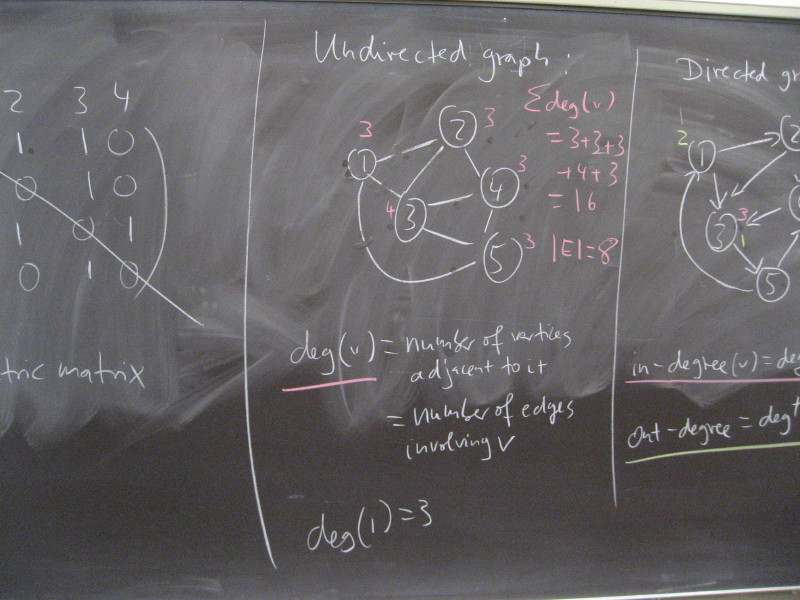 2 3 4
1 1 0
0 1 0
1 0 1
0 1 0
tric matrix
Undirected graph:
3
1
2
3
4
3
3
4
5
3
Σdeg(v)
= 3+3+3
+4+3
= 16
|E|=8
deg(v) = number of vertices
adjacent to it
= number of edges
involving v
deg(1)=3
Directed gr
1
2
1
2
3
3
1
5
in-degree(v)=deg
out-degree = deg+